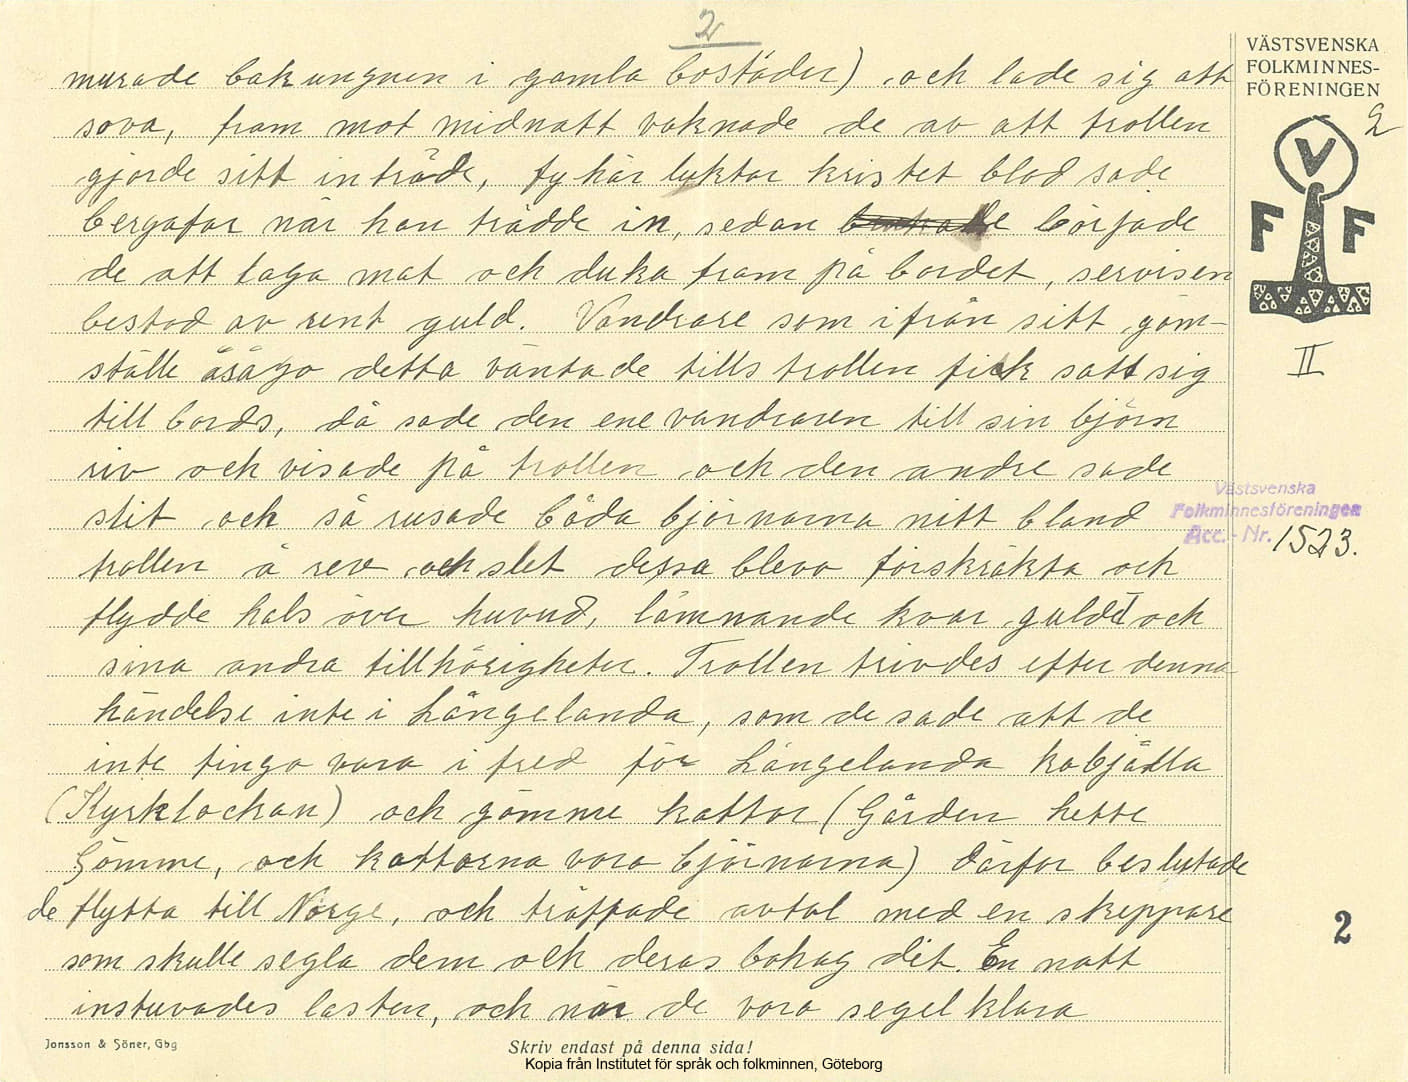 2
VÄSTSVENSKA
FOLKMINNES-
FÖRENINGEN
2
V
F F
II
murade bakungnen i gamla bostäder) och lade sig att
sova, fram mot midnatt vaknade de av att trollen
gjorde sitt inträde, fy här luktar kristet blod sade
bergafar när han trädde in, sedan började
de att taga mat och duka fram på bordet, servisen
bestod av rent guld. Vandrare som ifrån sitt göm-
ställe åsågo detta väntade tills trollen fick satt sig
till bords, då sade den ene vandraren till sin björn
riv och visade på trollen och den andre sade
slit och så rusade båda björnarna nitt bland
trollen å rev och slet dessa blevo förskräkta och
flydde hals över huvud, lämnande kvar guldet och
sina andra tillhörigheter. Trollen trivdes efter denna
händelse inte i Långelanda, som de sade att de
inte fingo vara i fred för Långelanda kobjälla
(Kyrklockan) och gömme kattor (Gården hette
Gömme, och kattorna voro björnarna) därför beslutade
de flytta till Norge, och träffade avtal med en skeppare
som skulle segla dem och deras bohag dit. En natt
instuvades lasten, och när de voro segelklara
Västsvenska
Folkminnesföreningen
Acc.-Nr. 1523.
2
Jonsson & Söner, Gbg
Skriv endast på denna sida!
Kopia från Institutet för språk och folkminnen, Göteborg